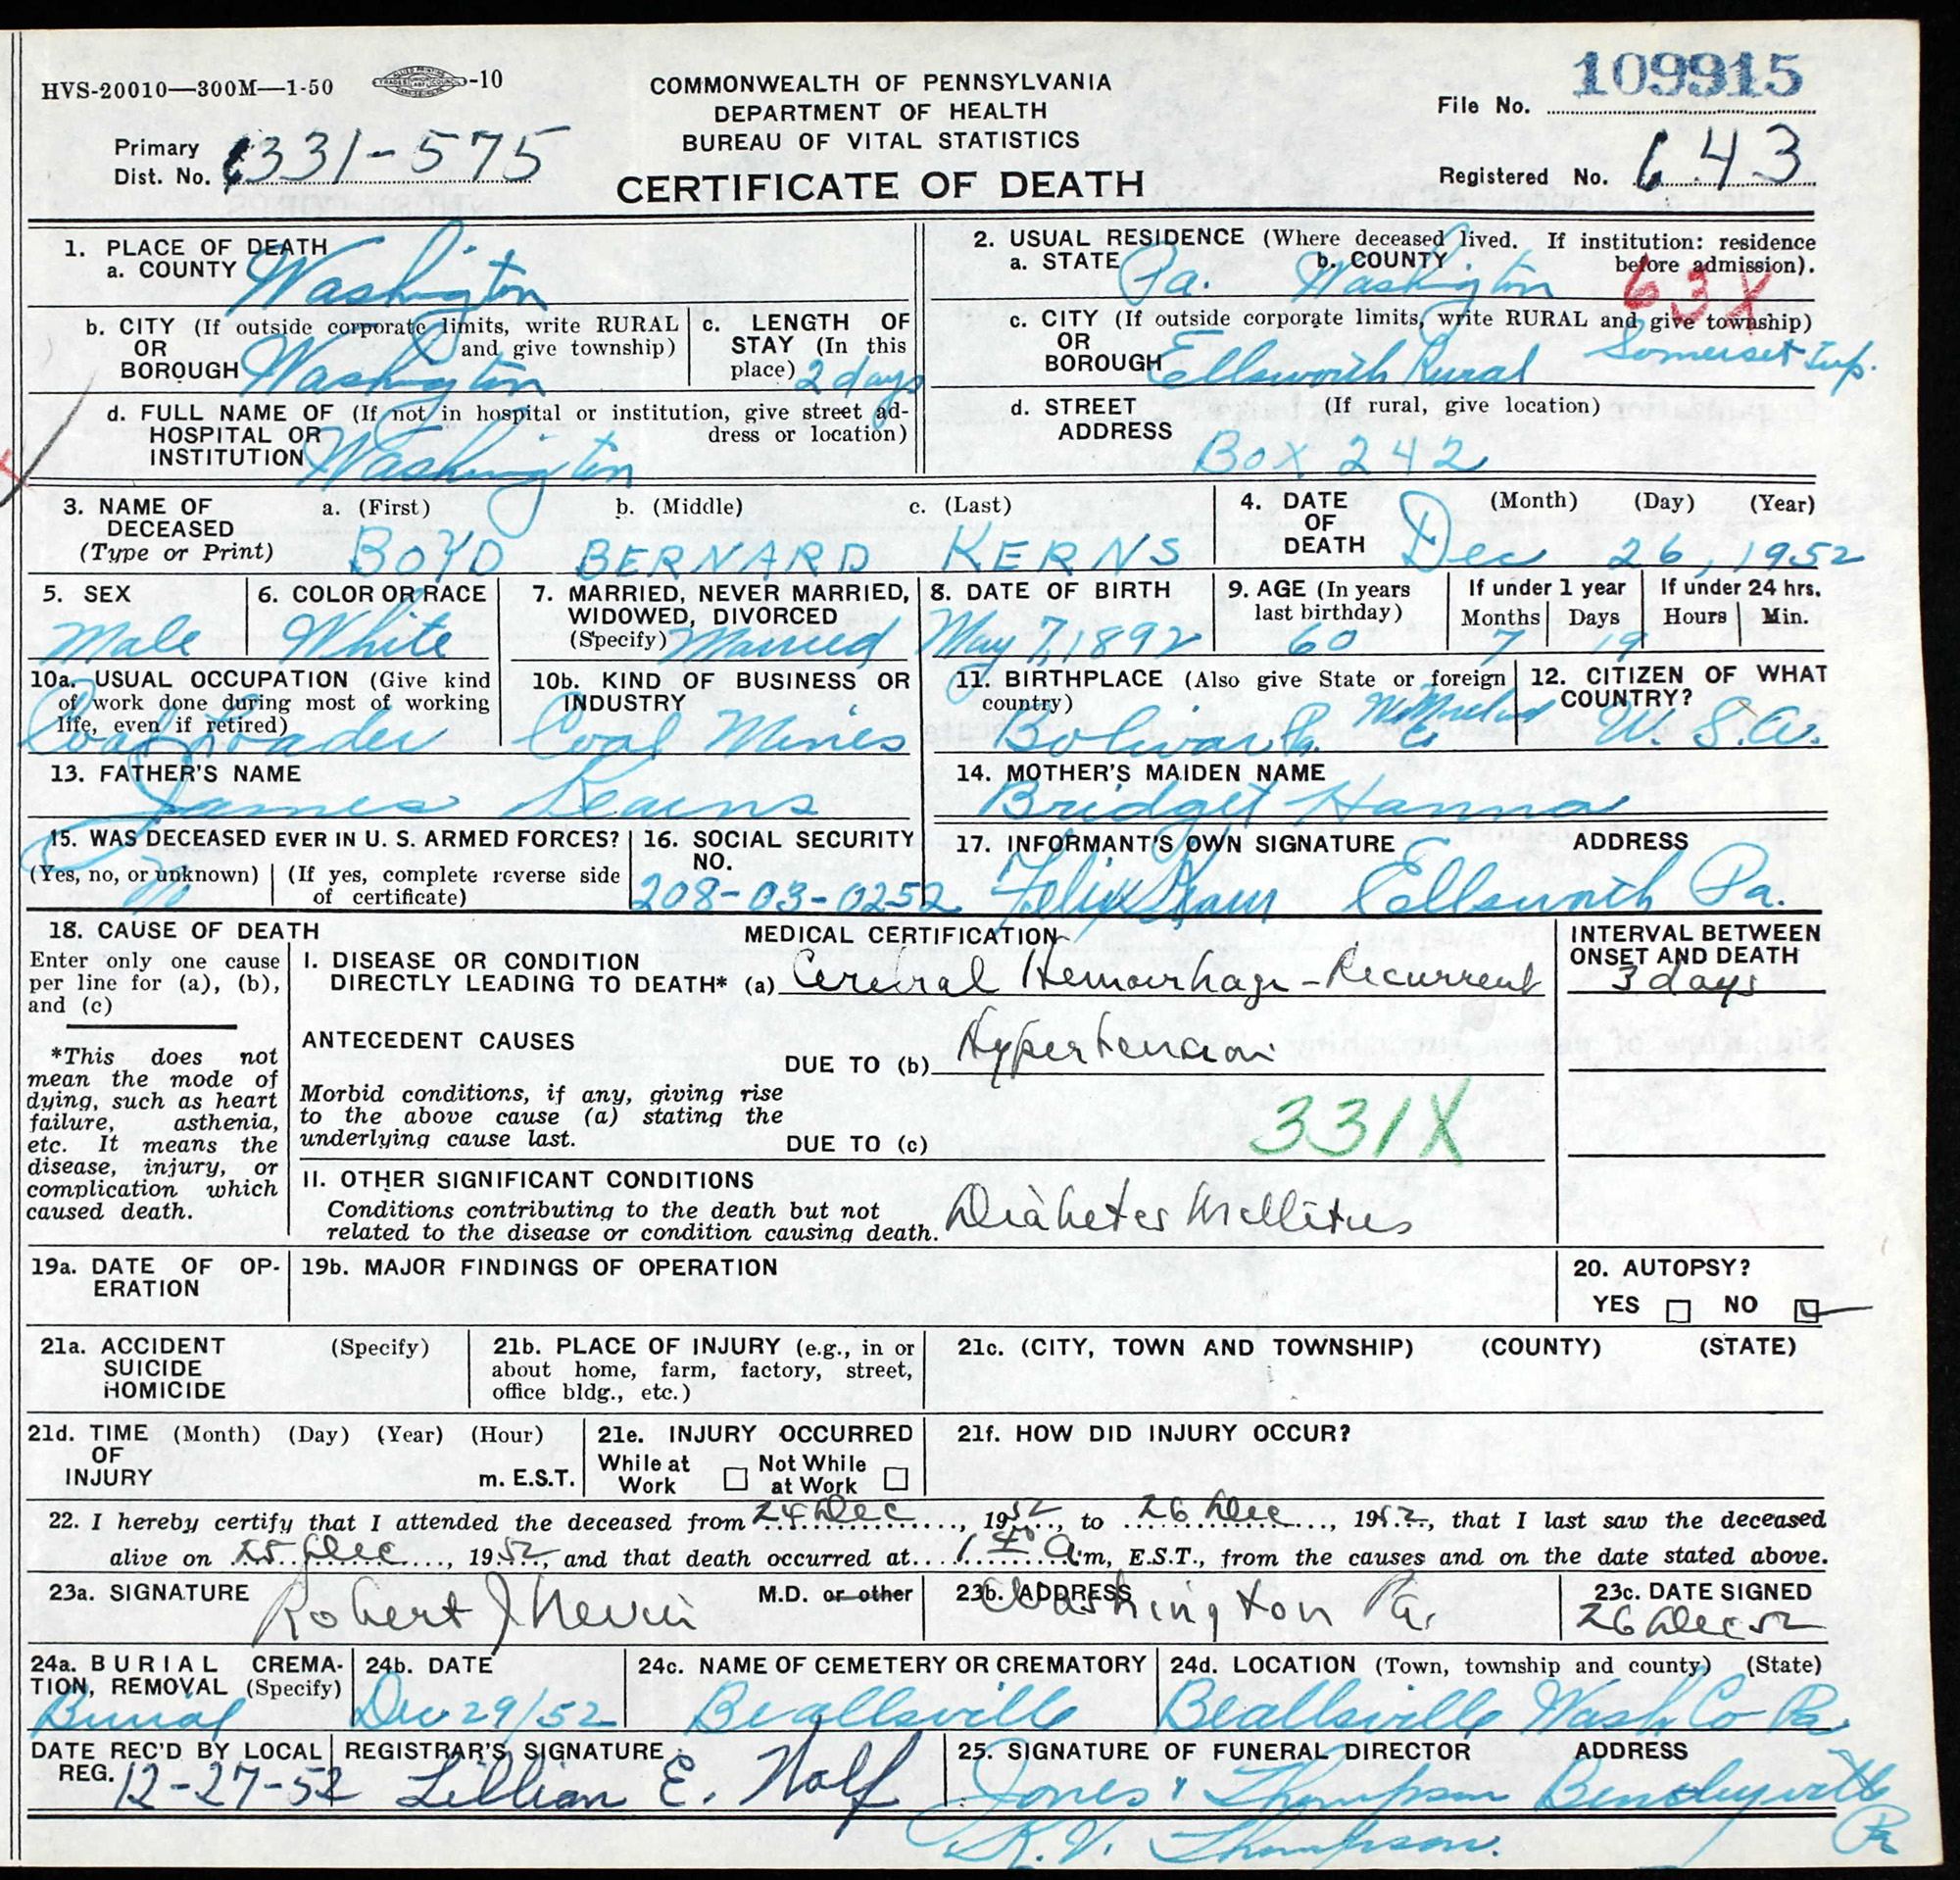 HVS-20010—300M—1-50 -10
COMMONWEALTH OF PENNSYLVANIA
DEPARTMENT OF HEALTH
BUREAU OF VITAL STATISTICS
CERTIFICATE OF DEATH
File No. 109915
Primary Dist. No. 331-575
Registered No. 643
1. PLACE OF DEATH
a. COUNTY Washington
b. CITY (If outside corporate limits, write RURAL
OR and give township)
BOROUGH Washington
c. LENGTH OF
STAY (In this
place) 2 days
d. FULL NAME OF (If not in hospital or institution, give street ad-
HOSPITAL OR dress or location)
INSTITUTION Washington
2. USUAL RESIDENCE (Where deceased lived. If institution: residence
a. STATE Pa. b. COUNTY Washington before admission).
63X
c. CITY (If outside corporate limits, write RURAL and give township)
OR
BOROUGH Ellsworth Rural Somerset Twp.
d. STREET (If rural, give location)
ADDRESS Box 242
3. NAME OF a. (First) b. (Middle) c. (Last)
DECEASED
(Type or Print) BOYD BERNARD KERNS
4. DATE (Month) (Day) (Year)
OF
DEATH Dec 26, 1952
5. SEX
Male
6. COLOR OR RACE
White
7. MARRIED, NEVER MARRIED,
WIDOWED, DIVORCED
(Specify) Married
8. DATE OF BIRTH
May 7, 1892
9. AGE (In years
last birthday)
60
If under 1 year
Months Days
7 19
If under 24 hrs.
Hours Min.
10a. USUAL OCCUPATION (Give kind
of work done during most of working
life, even if retired)
Coal Loader
10b. KIND OF BUSINESS OR
INDUSTRY
Coal Mines
11. BIRTHPLACE (Also give State or foreign
country)
Bolivar Pa. Westmoreland Co
12. CITIZEN OF WHAT
COUNTRY?
U.S.A.
13. FATHER'S NAME
James Kearns
14. MOTHER'S MAIDEN NAME
Bridget Hanna
15. WAS DECEASED EVER IN U. S. ARMED FORCES?
(Yes, no, or unknown) (If yes, complete reverse side
of certificate)
No
16. SOCIAL SECURITY
NO.
208-03-0252
17. INFORMANT'S OWN SIGNATURE ADDRESS
Felix Ellsworth Pa.
18. CAUSE OF DEATH
Enter only one cause
per line for (a), (b),
and (c)
*This does not
mean the mode of
dying, such as heart
failure, asthenia,
etc. It means the
disease, injury, or
complication which
caused death.
MEDICAL CERTIFICATION
I. DISEASE OR CONDITION
DIRECTLY LEADING TO DEATH* (a) Cerebral Hemorrhage - Recurrent
INTERVAL BETWEEN
ONSET AND DEATH
3 days
ANTECEDENT CAUSES
DUE TO (b) Hypertension
Morbid conditions, if any, giving rise
to the above cause (a) stating the
underlying cause last.
DUE TO (c)
331X
II. OTHER SIGNIFICANT CONDITIONS
Conditions contributing to the death but not
related to the disease or condition causing death. Diabetes Mellitus
19a. DATE OF OP-
ERATION
19b. MAJOR FINDINGS OF OPERATION
20. AUTOPSY?
YES NO
21a. ACCIDENT (Specify)
SUICIDE
HOMICIDE
21b. PLACE OF INJURY (e.g., in or
about home, farm, factory, street,
office bldg., etc.)
21c. (CITY, TOWN AND TOWNSHIP) (COUNTY) (STATE)
21d. TIME (Month) (Day) (Year) (Hour)
OF
INJURY m. E.S.T.
21e. INJURY OCCURRED
While at Work Not While at Work
21f. HOW DID INJURY OCCUR?
22. I hereby certify that I attended the deceased from 24 Dec, 1952, to 26 Dec, 1952, that I last saw the deceased
alive on 25 Dec, 1952, and that death occurred at 1 a.m, E.S.T., from the causes and on the date stated above.
23a. SIGNATURE M.D. or other
Robert J
23b. ADDRESS
Washington Pa.
23c. DATE SIGNED
26 Dec 52
24a. BURIAL CREMA-
TION, REMOVAL (Specify)
Burial
24b. DATE
Dec 29/52
24c. NAME OF CEMETERY OR CREMATORY
Beallsville
24d. LOCATION (Town, township and county) (State)
Beallsville Wash Co Pa
DATE REC'D BY LOCAL
REG. 12-27-52
REGISTRAR'S SIGNATURE
Lillian E. Wolf
25. SIGNATURE OF FUNERAL DIRECTOR ADDRESS
Jones & Thompson Bentleyville
R.V. Thompson. Pa